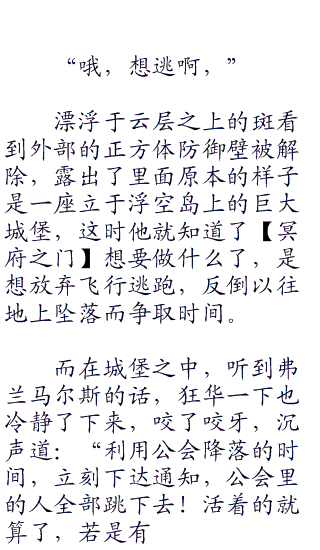 “哦，想逃啊，”
漂浮于云层之上的斑看
到外部的正方体防御壁被解
除，露出了里面原本的样子
是一座立于浮空岛上的巨大
城堡，这时他就知道了【冥
府之门】想要做什么了，是
想放弃飞行逃跑，反倒以往
地上坠落而争取时间。
而在城堡之中，听到弗
兰马尔斯的话，狂华一下也
冷静了下来，咬了咬牙，沉
声道：“利用公会降落的时
间，立刻下达通知，公会里
的人全部跳下去！活着的就
算了，若是有